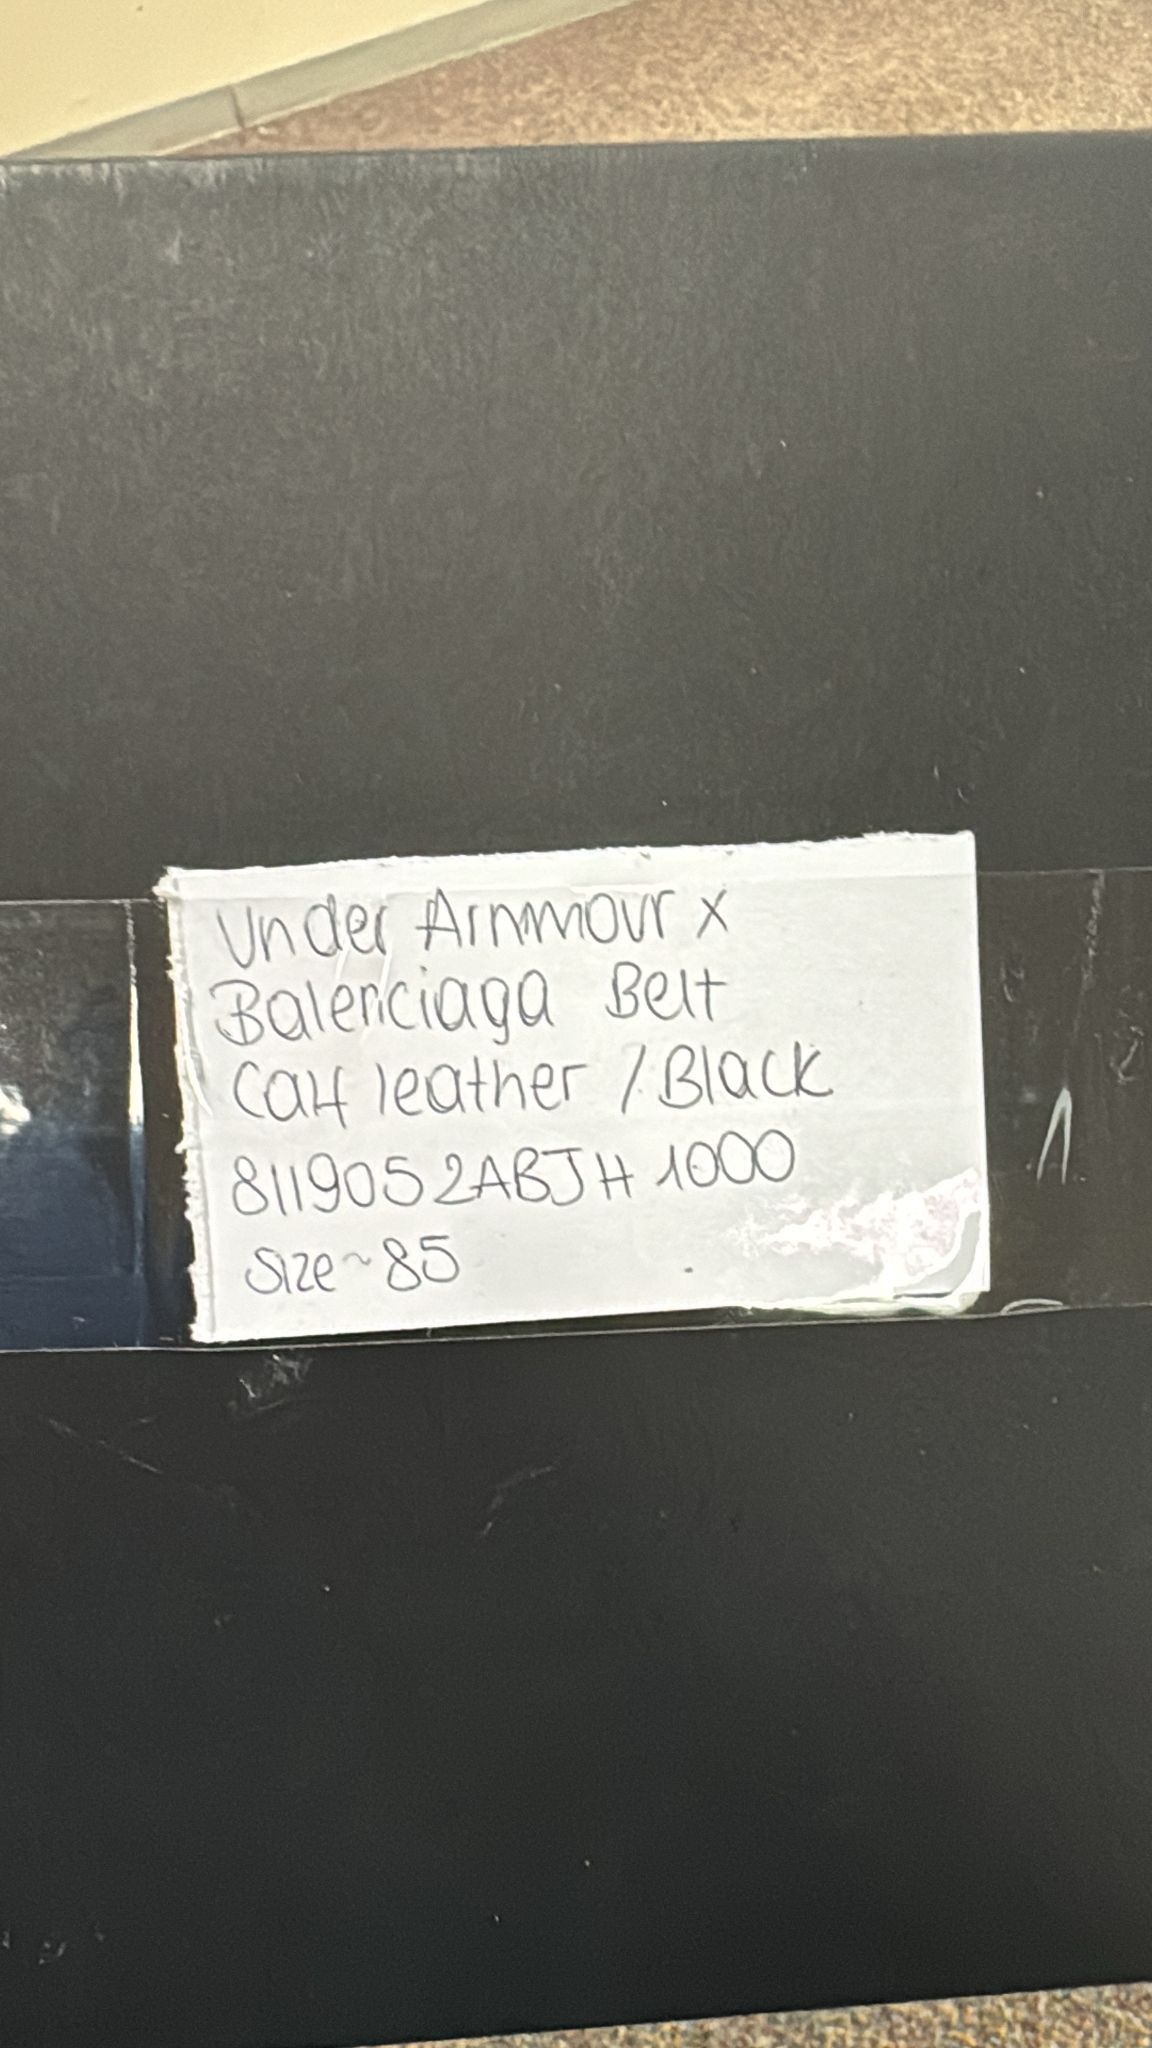 Under Arnmour x
Balenciaga Belt
Calf leather / Black
8119052ABJH 1000
Size ~ 85
1